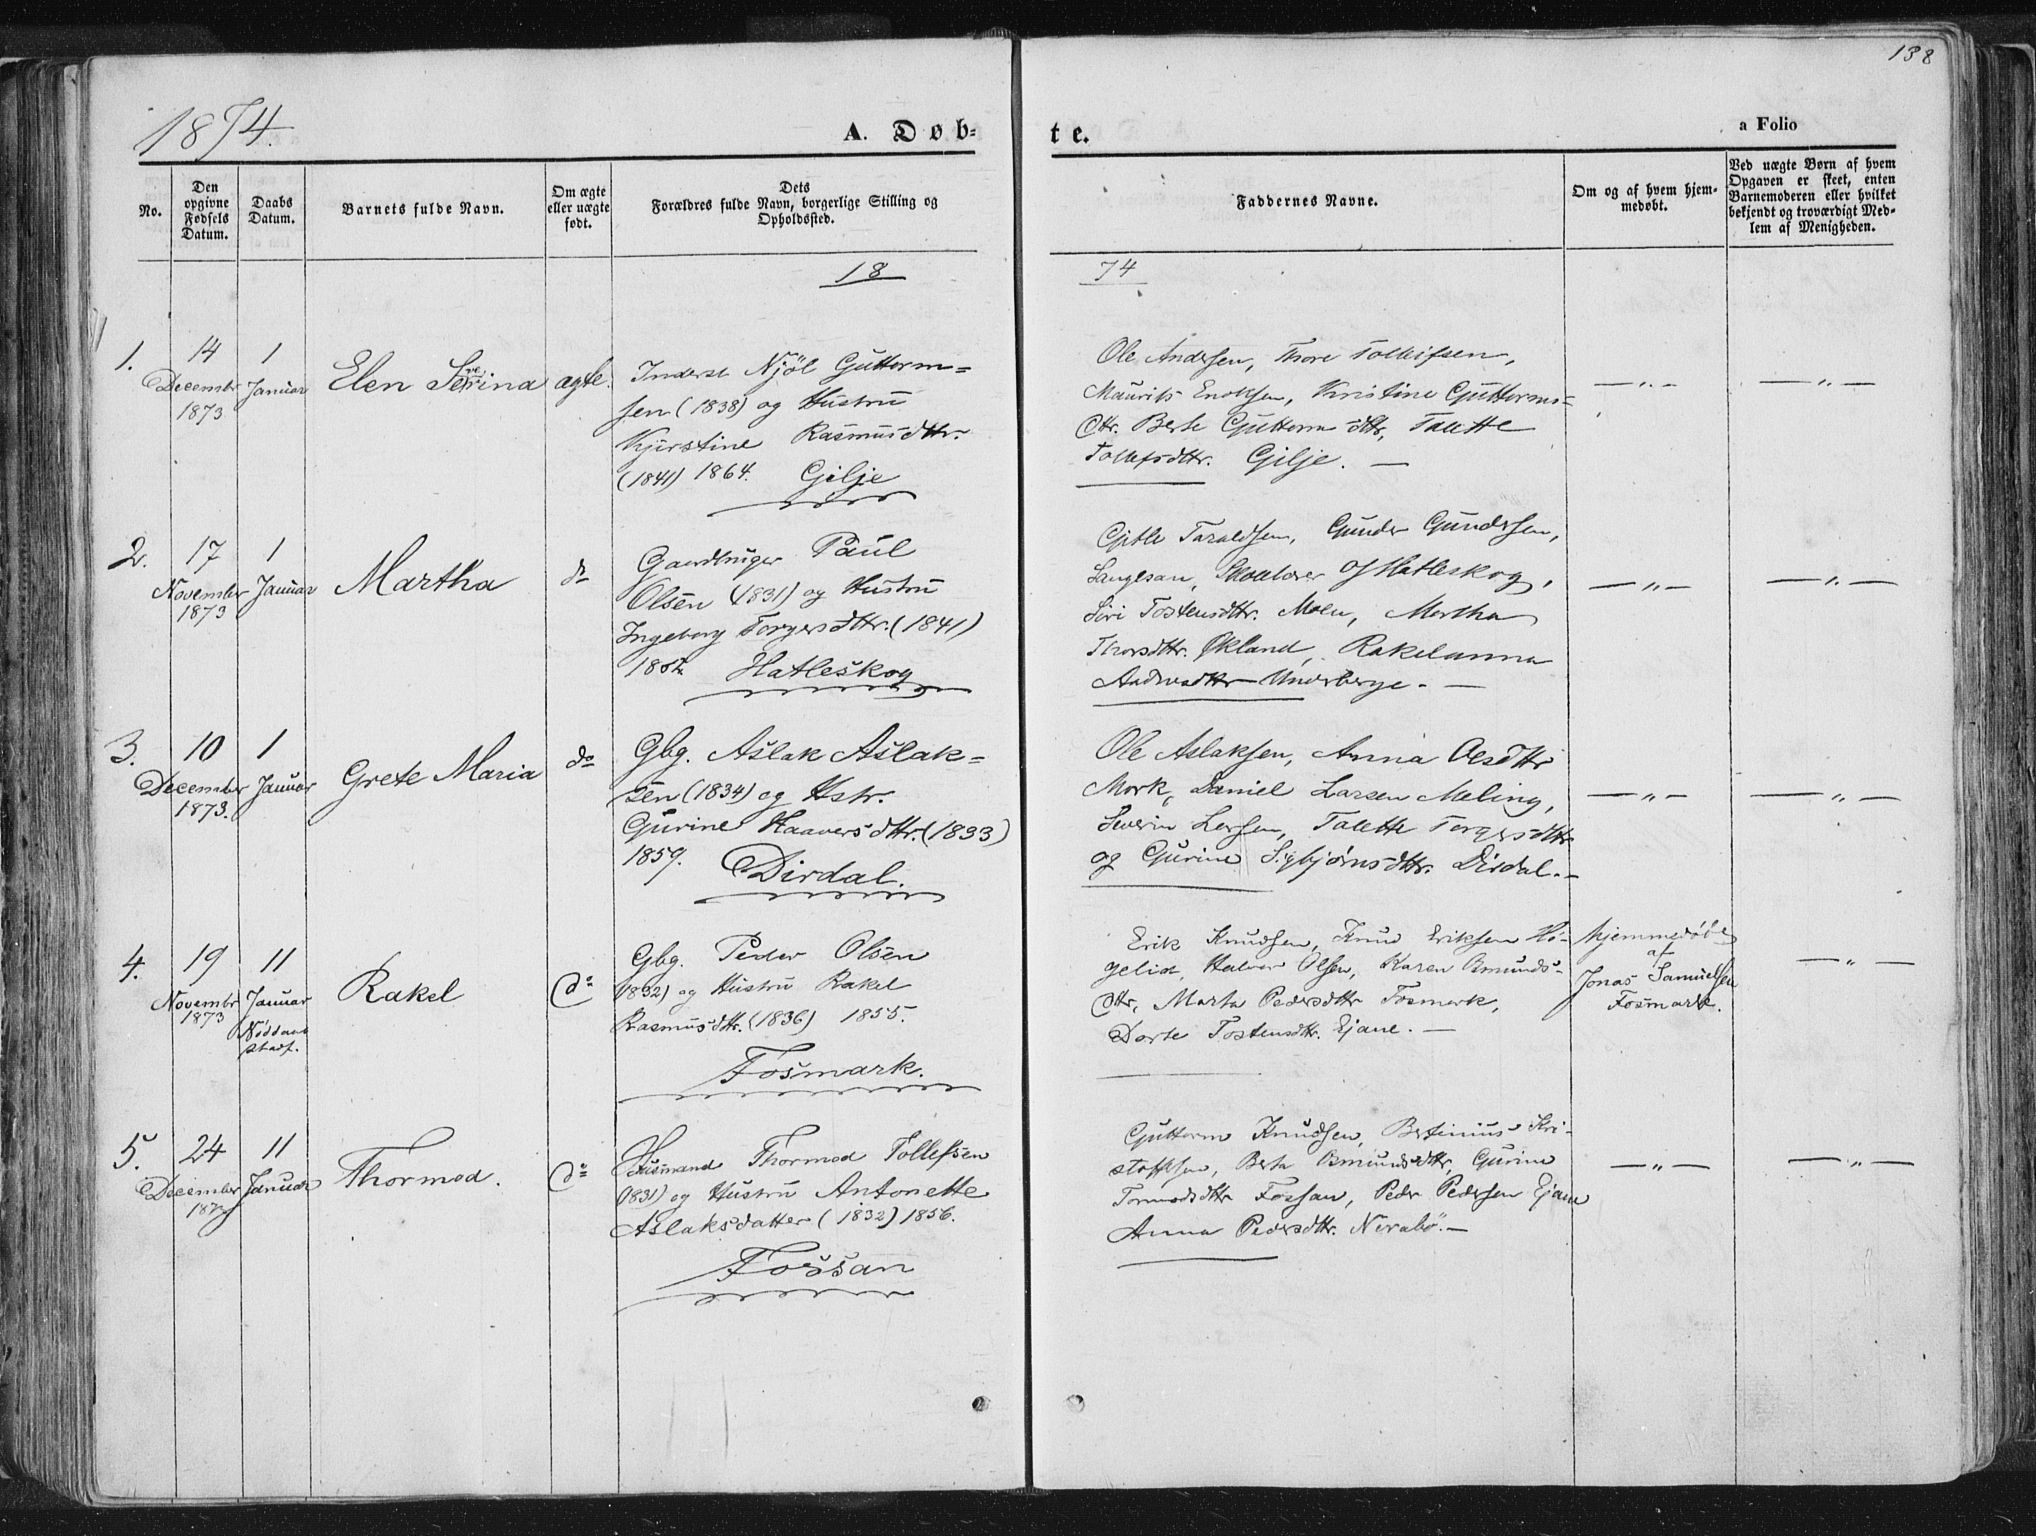 138
1874.
A. Døb-
te.
a Folio
No.
Den opgivne Fødsels Datum.
Daabs Datum.
Barnets fulde Navn.
Om ægte eller uægte født.
Dets Forældres fulde Navn, borgerlige Stilling og Opholdssted.
Faddernes Navne.
Om og af hvem hjemmedøbt.
Ved uægte Børn af hvem Opgaven er skeet, enten Barnemoderen eller hvilket bekjendt og troværdigt Medlem af Menigheden.
18
74
1.
14 Decembr 1873
1 Januar
Elen Serina
ægte.
Inderst Njöl Guttorm=
sen (1838) og Hustru
Kjerstine Rasmusdttr.
(1841) 1864. Gilje
Ole Andersen, Thore Tolleifsen,
Maurits Enoksen, Kristine Guttorms-
dttr. Berte Guttormsdttr, Talette
Tollefsdttr. Gilje. —
— „ —
— „ —
2.
17 November 1873
1 Januar
Martha
do
Gaardbruger Paul
Olsen (1831) og Hustru
Ingeborg Torgersdttr. (1841)
Hatleskog
Gitle Taraldsen, Gunder Gundersen,
Hatleskog,
Siri Tostensdttr. Moen, Martha
Thorsdttr. Økland, Rakelanna
— „ —
— „ —
3.
10 December 1873.
1 Januar
Grete Maria
do
Gbg. Aslak Aslak=
sen (1834) og Hstr.
Gurine Haaversdttr. (1833)
1859.
Dirdal.
Ole Aslaksen, Anna Olesdttr
Mork, Daniel Larsen Meling,
Severin Larsen, Talette Torgersdttr
og Gurine Sigbjørnsdttr. Dirdal. —
— „ —
— „ —
4.
19 Novembr 1873
11 Januar
Rakel
do
Gbg. Peder Olsen
(1832) og Hustru Rakel
Rasmusdttr. (1836) 1855.
Fosmark.
Erik Knudsen, Knud Eriksen Hö-
gelid, Halvor Olsen, Karen Omunds-
dttr, Marta Pedersdttr Fosmark,
Dorte Tostensdttr. Ejane. —
hjemmedöbt
af
Jonas Samuelsen
Fosmark.
— „ —
5.
24 December 1873
11 Januar
Thormod.
do
Husmand Thormod Tollefsen
(1831) og Hustru Antonette
Aslaksdatter (1832) 1856.
Fossan
Guttorm Knudsen, Bertinius Kri-
stoffersen, Berta Omundsdttr, Gurine
Tormodsdttr Fossan, Peder Pedersen Ejane
Anna Pedersdttr. Nerabö. —
— „ —
— „ —